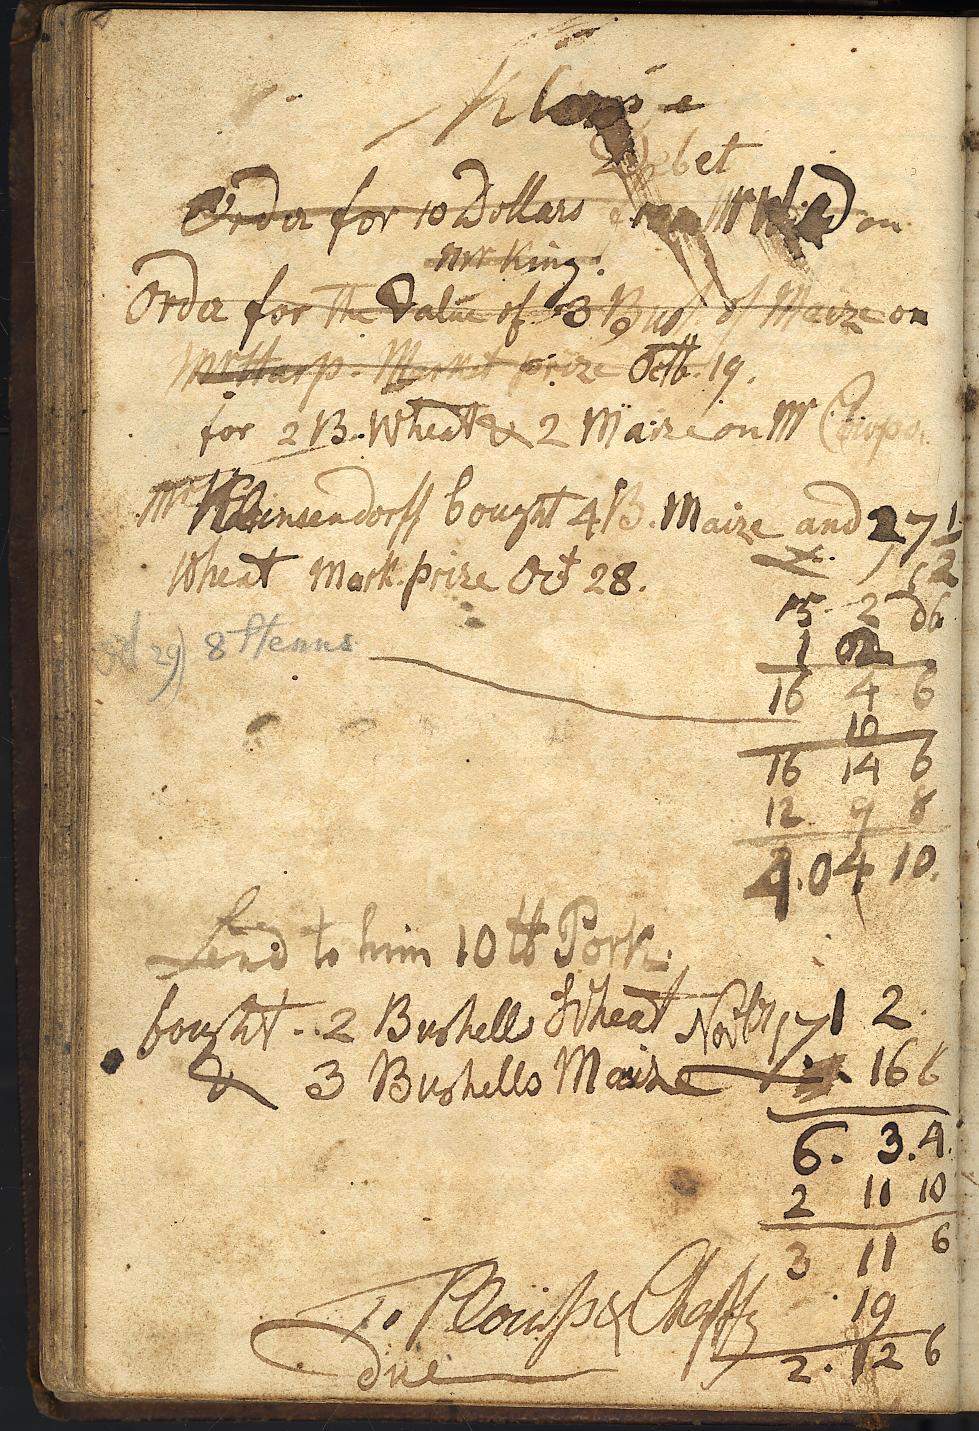 Debet
Order for 10 Dollars on
Mr King.
Order for The Value of 3 Bush of Maize on
Mr Harp. Market prize Octb. 19.
for 2 B. Wheat & 2 Maize on Mr
Mr Kleinsendorff bought 4 B. Maize and 2
Wheat Mark. prize Oct 28.
15 2 6
1 02
8 Stenns 16 4 6
10
16 14 6
12 9 8
4. 04 10.
Send to him 10 tt Pork.
bought .. 2 Bushells Wheat Novbr 17 1 2.
& 3 Bushells Maize 16 6
6. 3. 4.
2 11 10
3 11 6
19
To &
due 2. 12 6